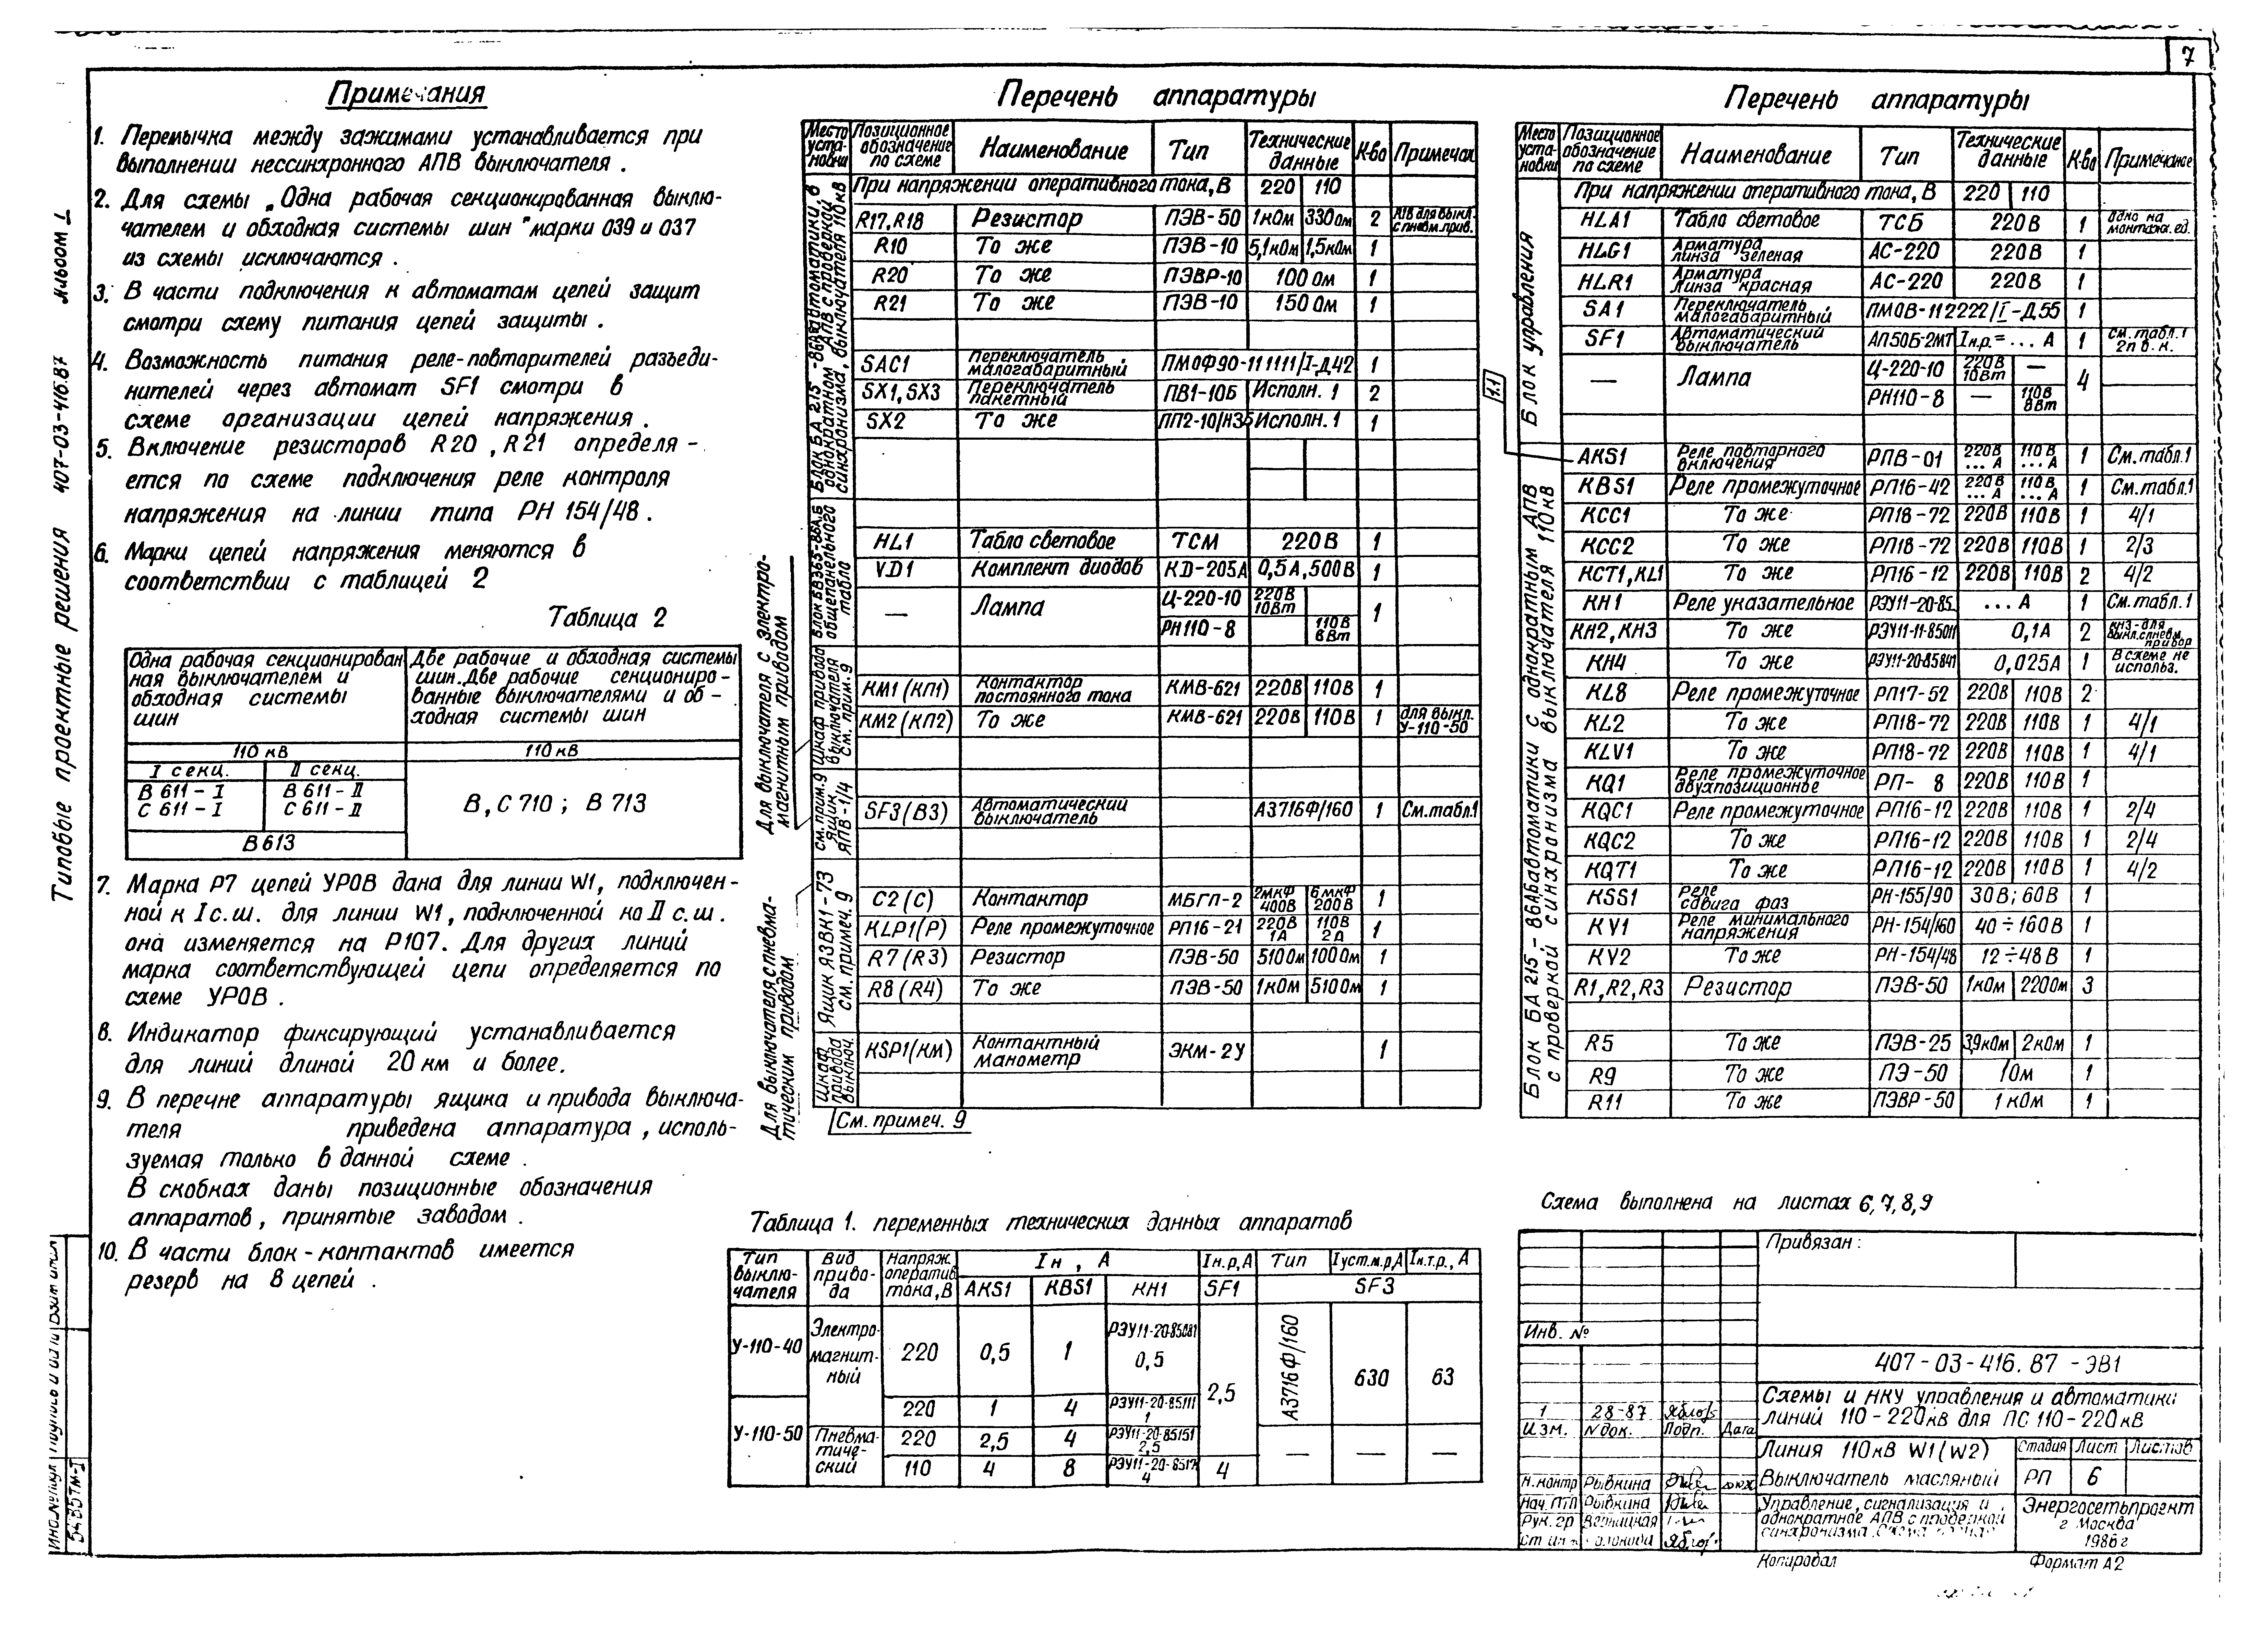 7
Типовые проектные решения 407-03-416.87 Альбом I
Примечания
1. Перемычка между зажимами устанавливается при
выполнении нессинхронного АПВ выключателя.
2. Для схемы „Одна рабочая секционированная выклю-
чателем и обходная системы шин" марки 039 и 037
из схемы исключаются.
3. В части подключения к автоматам цепей защит
смотри схему питания цепей защиты.
4. Возможность питания реле-повторителей разъеди-
нителей через автомат SF1 смотри в
схеме организации цепей напряжения.
5. Включение резисторов R20, R21 определя-
ется по схеме подключения реле контроля
напряжения на линии типа РН 154/48.
6. Марки цепей напряжения меняются в
соответствии с таблицей 2
Таблица 2
Одна рабочая секционирован
ная выключателем и
обходная системы
шин
Две рабочие и обходная системы
шин. Две рабочие секциониро-
ванные выключателями и об-
ходная системы шин
110 кВ 110 кВ
I секц. II секц.
В 611-I В 611-II
С 611-I С 611-II
В, С 710; В 713
В613
7. Марка Р7 цепей УРОВ дана для линии W1, подключен-
ной к I с.ш. для линии W1, подключенной ко II с.ш.
она изменяется на Р107. Для других линий
марка соответствующей цепи определяется по
схеме УРОВ.
8. Индикатор фиксирующий устанавливается
для линий длиной 20 км и более.
9. В перечне аппаратуры ящика и привода выключа-
теля приведена аппаратура, исполь-
зуемая только в данной схеме.
В скобках даны позиционные обозначения
аппаратов, принятые заводом.
10. В части блок-контактов имеется
резерв на 8 цепей.
Перечень аппаратуры
Место установки Позиционное обозначение по схеме Наименование Тип Технические данные К-во Примечан
При напряжении оперативного тока, В 220 110
Блок БА 215-86А,Б автоматики, в однократном АПВ с проверкой синхронизма, выключателя 110 кВ
R17, R18 Резистор ПЭВ-50 1кОм 330ом 2 R18 для выкл. с пневм. прив.
R10 То же ПЭВ-10 5,1кОм 1,5кОм 1
R20 То же ПЭВР-10 100 Ом 1
R21 То же ПЭВ-10 150 Ом 1
SAC1 Переключатель малогабаритный ПМОФ90-111111/I-Д42 1
SX1, SX3 Переключатель пакетный ПВ1-10Б Исполн. 1 2
SX2 То же ПП2-10/Н3Б Исполн. 1 1
Блок БВ365-86А,Б общепанельного табло
HL1 Табло световое ТСМ 220 В 1
VD1 Комплект диодов КD-205А 0,5А, 500В 1
— Лампа Ц-220-10 220В 10Вт 1
РН110-8 110В 8Вт
Для выключателя с электро-
магнитным приводом
Шкаф привода выключателя см. прим. 9
КМ1 (КП1) Контактор постоянного тока КМВ-621 220В 110В 1
КМ2 (КП2) То же КМВ-621 220В 110В 1 для выкл. У-110-50
См. прим. 9 Ящик ЯПВ-1/4
SF3 (В3) Автоматический выключатель А3716Ф/160 1 См. табл. 1
Для выключателя с пневма-
тическим приводом
Ящик ЯЗВН1-73 см. примеч. 9
С2 (С) Контактор МБГП-2 2мкФ 400В 6мкФ 200В 1
KLP1(Р) Реле промежуточное РП16-21 220В 1А 110В 2А 1
R7 (R3) Резистор ПЭВ-50 510Ом 100Ом 1
R8 (R4) То же ПЭВ-50 1кОм 510Ом 1
Шкаф привода выключ.
KSP1(КМ) Контактный манометр ЭКМ-2У 1
См. примеч. 9
Перечень аппаратуры
Место установки Позиционное обозначение по схеме Наименование Тип Технические данные К-во Примечание
При напряжении оперативного тока, В 220 110
Блок управления
HLA1 Табло световое ТСБ 220 В 1 одно на монтажн. ед.
HLG1 Арматура линза зеленая АС-220 220 В 1
HLR1 Арматура линза красная АС-220 220В 1
SA1 Переключатель малогабаритный ПМОВ-112222/I-Д55 1
SF1 Автоматический выключатель АП50Б-2МТ Iн.р.=... А 1 См. табл. 1 2п в.к.
— Лампа Ц-220-10 220В 10Вт — 4
РН110-8 — 110В 8Вт
1.1
Блок БА 215-86А,Б автоматики с однократным АПВ
с проверкой синхронизма выключателя 110кВ
AKS1 Реле повторного включения РПВ-01 220В ...А 110В ...А 1 См. табл. 1
KBS1 Реле промежуточное РП16-42 220В ...А 110В ...А 1 См. табл. 1
KCC1 То же РП18-72 220В 110В 1 4/1
KCC2 То же РП18-72 220В 110В 1 2/3
KCT1, KL1 То же РП16-12 220В 110В 2 4/2
KH1 Реле указательное РЭУ11-20-85.. ...А 1 См. табл. 1
KH2, KH3 То же РЭУ11-11-85011 0,1А 2 KH3-для выкл. с пневм. привод
KH4 То же РЭУ11-20-85841 0,025А 1 В схеме не использ.
KL8 Реле промежуточное РП17-52 220В 110В 2
KL2 То же РП18-72 220В 110В 1 4/1
KLV1 То же РП18-72 220В 110В 1 4/1
KQ1 Реле промежуточное двухпозиционное РП- 8 220В 110В 1
KQC1 Реле промежуточное РП16-12 220В 110В 1 2/4
KQC2 То же РП16-12 220В 110В 1 2/4
KQT1 То же РП16-12 220В 110В 1 4/2
KSS1 Реле сдвига фаз РН-155/90 30В; 60В 1
KV1 Реле минимального напряжения РН-154/160 40÷160В 1
KV2 То же РН-154/48 12÷48 В 1
R1, R2, R3 Резистор ПЭВ-50 1кОм 220Ом 3
R5 То же ПЭВ-25 3,9кОм 2кОм 1
R9 То же ПЭ-50 1Ом 1
R11 То же ПЭВР-50 1 кОм 1
Таблица 1. переменных технических данных аппаратов
Тип выключателя Вид привода Напряж. оператив. тока, В Iн, А Iн.р, А Тип Iуст.м.р, А Iн.т.р., А
AKS1 KBS1 KH1 SF1 SF3
У-110-40 Электромагнитный 220 0,5 1 РЭУ11-20-85081 0,5 2,5 А3716Ф/160 630 63
220 1 4 РЭУ11-20-85111 1
У-110-50 Пневматический 220 2,5 4 РЭУ11-20-85151 2,5 — — —
110 4 8 РЭУ11-20-8517 4 4
Схема выполнена на листах 6, 7, 8, 9
Привязан:
Инв. №
407-03-416.87 -ЭВ1
Схемы и НКУ управления и автоматики
линий 110-220кВ для ПС 110-220кВ
1 28-87
Изм. N док. Подп. Дата
Линия 110кВ W1(W2)
Выключатель масляный
Стадия Лист Листов
РП 6
Н.контр Рывкина
Нач. ПТП Рывкина
Рук. гр Верницкая
Управление, сигнализация и
однократное АПВ с проверкой
синхронизма.
Энергосетьпроект
г Москва
1986 г
Копировал Формат А2
5485тм-I